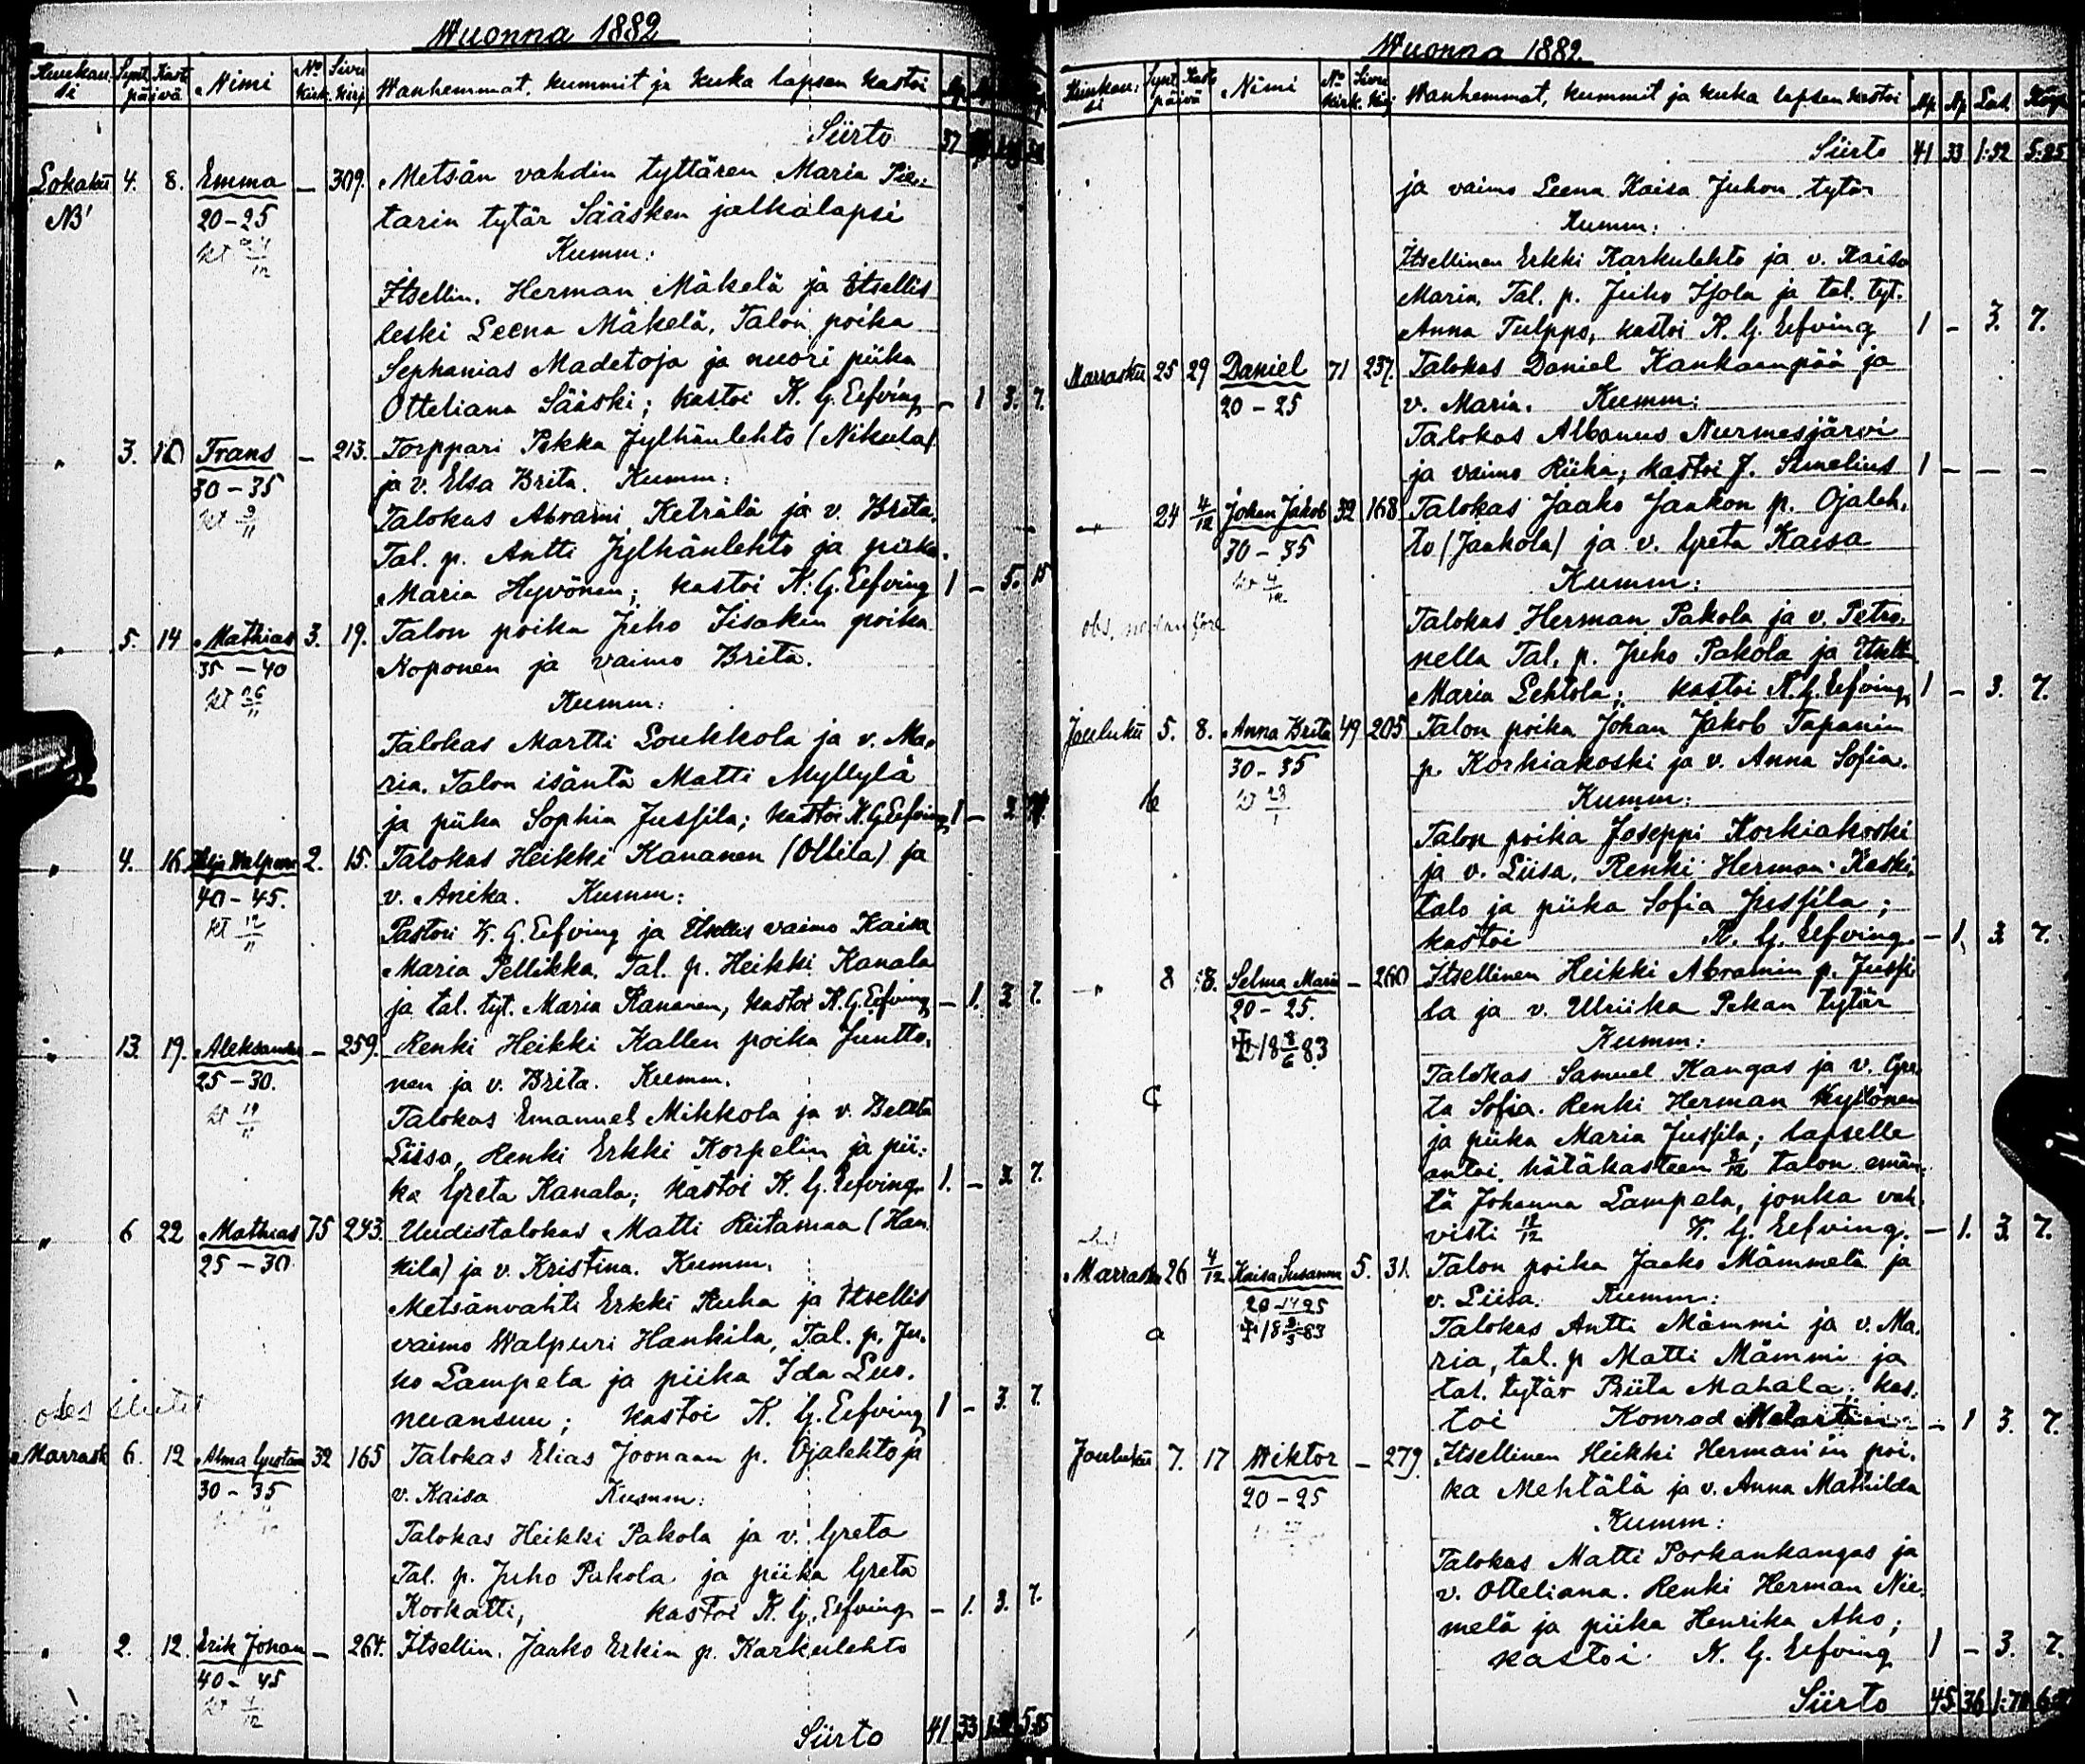 Wuonna 1882
Kuukausi Synt. Kast. päivä Nimi No Kirk. Sivu Kirj. Wanhemmat, kummit ja kuka lapsen kastoi
Siirto 37
Lokaku 4. 8. Emma — 309. Metsän vahdin tyttären Maria Pie-
NB 20-25 tarin tytär Sääsken jalkalapsi
Kumm:
Itsellin. Herman Mäkelä ja Itsellis
leski Leena Mäkelä, Talon poika
Sephanias Madetoja ja nuori piika
Otteliana Sääski; kastoi K. G. Eefving — 1 3. 7.
" 3. Frans — 213. Torppari Pekka Jylhänlehto (Nikula)
30-35 ja v. Elsa Brita. Kumm:
kt 9/11 Talokas Abrami Keträlä ja v. Brita.
Tal. p. Antti Jylhänlehto ja piika
Maria Hyvönen; kastoi K. G. Eefving 1 — 5. 15
" 5. 14 Mathias 3. 19. Talon poika Juho Iisakin poika
35-40 Noponen ja vaimo Brita.
kt 26/11 Kumm:
Talokas Martti Loukkola ja v. Ma-
ria. Talon isäntä Matti Myllylä
ja piika Sophia Jussila; kastoi K. G. Eefving 1 —
" 4. 16 Walpuri 2. 15. Talokas Heikki Kananen (Ollila) ja
40-45. v. Anika. Kumm:
kt 12/11 Pastori K. G. Eefving ja Itsellis vaimo Kaisa
Maria Pellikka. Tal. p. Heikki Kanala
ja tal. tyt. Maria Kananen, kastoi K. G. Eefving — 1. 3 7.
" 13. 19. Aleksander — 259. Renki Heikki Kallen poika Juntto-
25-30. nen ja v. Brita. Kumm.
kt 19/11 Talokas Emanuel Mikkola ja v. Beata
Liisa, Renki Erkki Korpelin ja pii-
ka Greta Kanala; kastoi K. G. Eefving. 1. — 3 7.
" 6 22 Mathias 75 243. Uudistalokas Matti Riitamaa (Han
25-30 kila) ja v. Kristina. Kumm.
Metsänvahti Erkki Kuha ja Itsellis
vaimo Walpuri Hankila, Tal. p. Ju-
ho Lampela ja piika Ida Luo-
nuansuu; kastoi K. G. Eefving 1 — 3. 7.
Marrask 6. 12 Alma Gustava 32 165 Talokas Elias Joonaan p. Ojalehto ja
30-35 v. Kaisa Kumm:
Talokas Heikki Pakola ja v. Greta
Tal. p. Juho Pakola ja piika Greta
Korkatti, kastoi K. G. Eefving — 1. 3. 7.
" 2. 12. Erik Johan — 264. Itsellin. Jaako Erkin p. Karkulehto
40-45
kt 1/12
Siirto 41 33
Wuonna 1882.
Kuukausi Synt. Kast. päivä Nimi No Kirk. Sivu Kirj. Wanhemmat, kummit ja kuka lapsen kastoi Mp Np Lad. Köyh
Siirto 41 33 1:52 5:85
ja vaimo Leena Kaisa Juhon tytär
Kumm:
Itsellinen Erkki Karkulehto ja v. Kaisa
Maria. Tal. p. Juho Isola ja tal. tyt.
Anna Tulppo, kastoi K. G. Eefving 1 — 3. 7.
Marrasku 25 29 Daniel 71 237. Talokas Daniel Kankaanpää ja
20-25 v. Maria. Kumm:
Talokas Albanus Nurmesjärvi
ja vaimo Riika; kastoi J. Simelius 1 — — —
" 24 4/12 Johan Jakob 32 168 Talokas Jaako Jaakon p. Ojaleh-
30-35 to (Jaakola) ja v. Greta Kaisa
kt 4/12 Kumm:
Talokas Herman Pakola ja v. Petro-
nella Tal. p. Juho Pakola ja Itsell.
Maria Lehtola; kastoi K. G. Eefving 1 — 3. 7.
Jouluku 5. 8. Anna Brita 49 205 Talon poika Johan Jakob Tapanin
30-35 p. Korkiakoski ja v. Anna Sofia.
b kt 23/1 Kumm:
Talon poika Joseppi Korkiakoski
ja v. Liisa. Renki Herman Keski-
talo ja piika Sofia Jussila;
kastoi K. G. Eefving. — 1. 3 7.
" 8 Selma Maria — 260 Itsellinen Heikki Abramin p. Jussi-
20-25. la ja v. Ulriika Pekan tytär
18 8/6 83 Kumm:
Talokas Samuel Kangas ja v. Gre-
c ta Sofia. Renki Herman Kyllönen
ja piika Maria Jussila; lapselle
antoi hätäkasteen 8/12 talon emän-
tä Johanna Lampela, jonka vah-
visti K. G. Eefving. — 1. 3. 7.
Marrasku 26 4/12 Kaisa Susanna 5. 31. Talon poika Jaako Mämmelä ja
v. Liisa. Kumm:
a Talokas Antti Mämmi ja v. Ma-
ria, tal. p Matti Mämmi ja
tal. tytär Priita Mahala; kas-
toi Konrad Metartin — 1 3. 7.
Jouluku 7. 17 Wiktor — 279. Itsellinen Heikki Herman'in poi-
20-25 ka Mehtälä ja v. Anna Mathilda
Kumm:
Talokas Matti Porkankangas ja
v. Otteliana. Renki Herman Nie-
melä ja piika Henrika Aho;
kastoi K. G. Eefving 1 — 3. 7.
Siirto 45 36